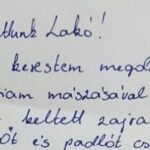 ltunk Lakó!
kerestem megol
am mászásával
keltett zajra
őt és padlót cs